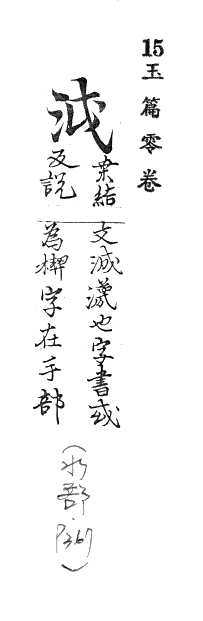 15玉篇零卷
泧
桒結
反說
文泧瀎也字書或
為揳字在手部
(水部.P361)